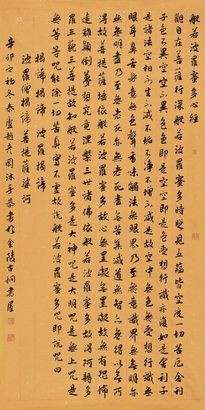 般若波羅蜜多心經
觀自在菩薩行深般若波羅蜜多時照見五蘊皆空度一切苦厄舍利
子色不異空空不異色色即是空空即是色受想行識亦復如是舍利子
是諸法空相不生不滅不垢不淨不增不減是故空中無色無受想行識無
眼耳鼻舌身意無色聲香味觸法無眼界乃至無意識界無無明亦
無無明盡乃至無老死亦無老死盡無苦集滅道無智亦無得以無所
得故菩提薩埵依般若波羅蜜多故心無罣礙無罣礙故無有恐怖
遠離顛倒夢想究竟涅槃三世諸佛依般若波羅蜜多故得阿耨多
羅三藐三菩提故知般若波羅蜜多是大神咒是大明咒是無上咒是
無等等咒能除一切苦真實不虛故說般若波羅蜜多咒即說咒曰
揭諦揭諦 波羅揭諦
波羅僧揭諦 菩提薩婆訶
辛卯之初冬 沐手恭書於金陵古桐書屋